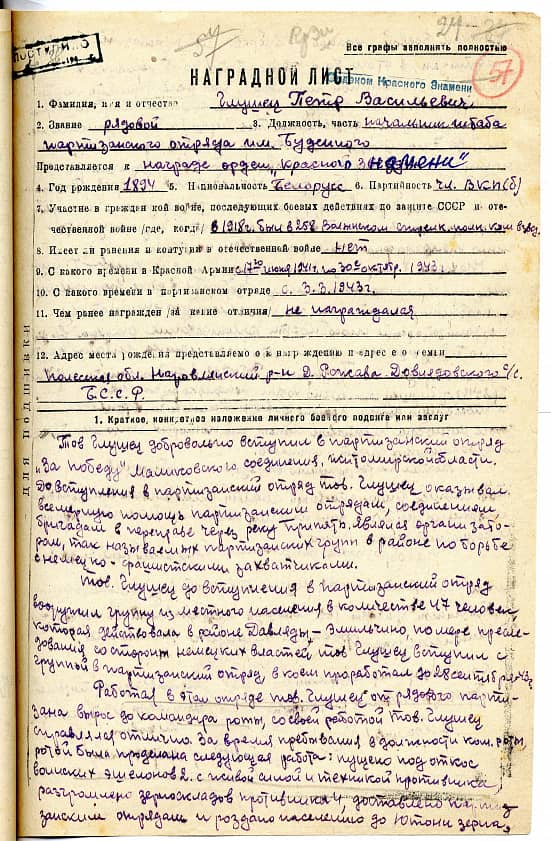 ПОСТУПИЛО
57
24
Все графы заполнять полностью
НАГРАДНОЙ ЛИСТ
Орденом Красного Знамени
57
1. Фамилия, имя и отчество Глушец Петр Васильевич
2. Звание рядовой 3. Должность, часть начальник штаба
партизанского отряда им. Буденного
Представляется к награде орден „Красного Знамени"
4. Год рождения 1894 5. Национальность Белорусс 6. Партийность чл. ВКП(б)
7. Участие в гражданской войне, последующих боевых действиях по защите СССР и оте-
чественной войне /где, когда/ в 1918г. был в 258 стрелк. полк. ком. взвод.
8. Имеет ли ранения и контузии в отечественной войне нет
9. С какого времени в Красной Армии с 17го июня 1941г. по 30е октябр. 1943
10. С какого времени в партизанском отряде с 3.3.1943г.
11. Чем ранее награжден /за какие отличия/ не награждался
12. Адрес места рождения представляемого к награждению и адрес его семьи
Полесская обл. Наровлянский р-н Д. Рожава Довлядовского с/с.
Б.С.С.Р.
1. Краткое, конкретное изложение личного боевого подвига или заслуг
Тов Глушец добровольно вступил в партизанский отряд
„За победу" Маликовского соединения, житомирской области.
До вступления в партизанский отряд тов. Глушец оказывал
всемерную помощь партизанским отрядам, соединениям
бригадам в переправе через реку Припять, являлся организато-
ром, так называемых партизанских групп в районе по борьбе
с немецко-фашистскими захватчиками.
Тов. Глушец до вступления в партизанский отряд
вооружил группу из местного населения в количестве 47 человек,
которая действовала в районе Давляды-Эмильчино, по мере пресле-
дования со стороны немецких властей тов Глушец вступил с
группой в партизанский отряд в коем проработал до 28 сентября 43г
Работая в этом отряде тов. Глушец от рядового парти-
зана вырос до командира роты, со своей работой тов. Глушец
справлялся отлично. За время пребывания в должности ком. роты
ротой была проделана следующая работа: пущено под откос
воинских эшелонов 2. с живой силой и техникой противника,
разгромлено зерноскладов противника 4, доставлено парти-
занским отрядам и роздано населению до 10 тонн зерна,
ДЛЯ ПОДШИВКИ